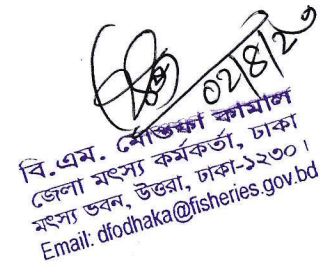 ০২/৪/২৩
বি.এম. মোস্তফা কামাল
জেলা মৎস্য কর্মকর্তা, ঢাকা
মৎস্য ভবন, উত্তরা, ঢাকা-১২৩০।
Email: dfodhaka@fisheries.gov.bd